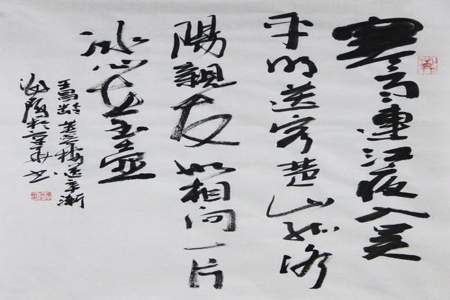 寒雨連江夜入吴
平明送客楚山孤洛
陽親友如相问一片
冰心在玉壶
王昌龄芙蓉樓送辛渐